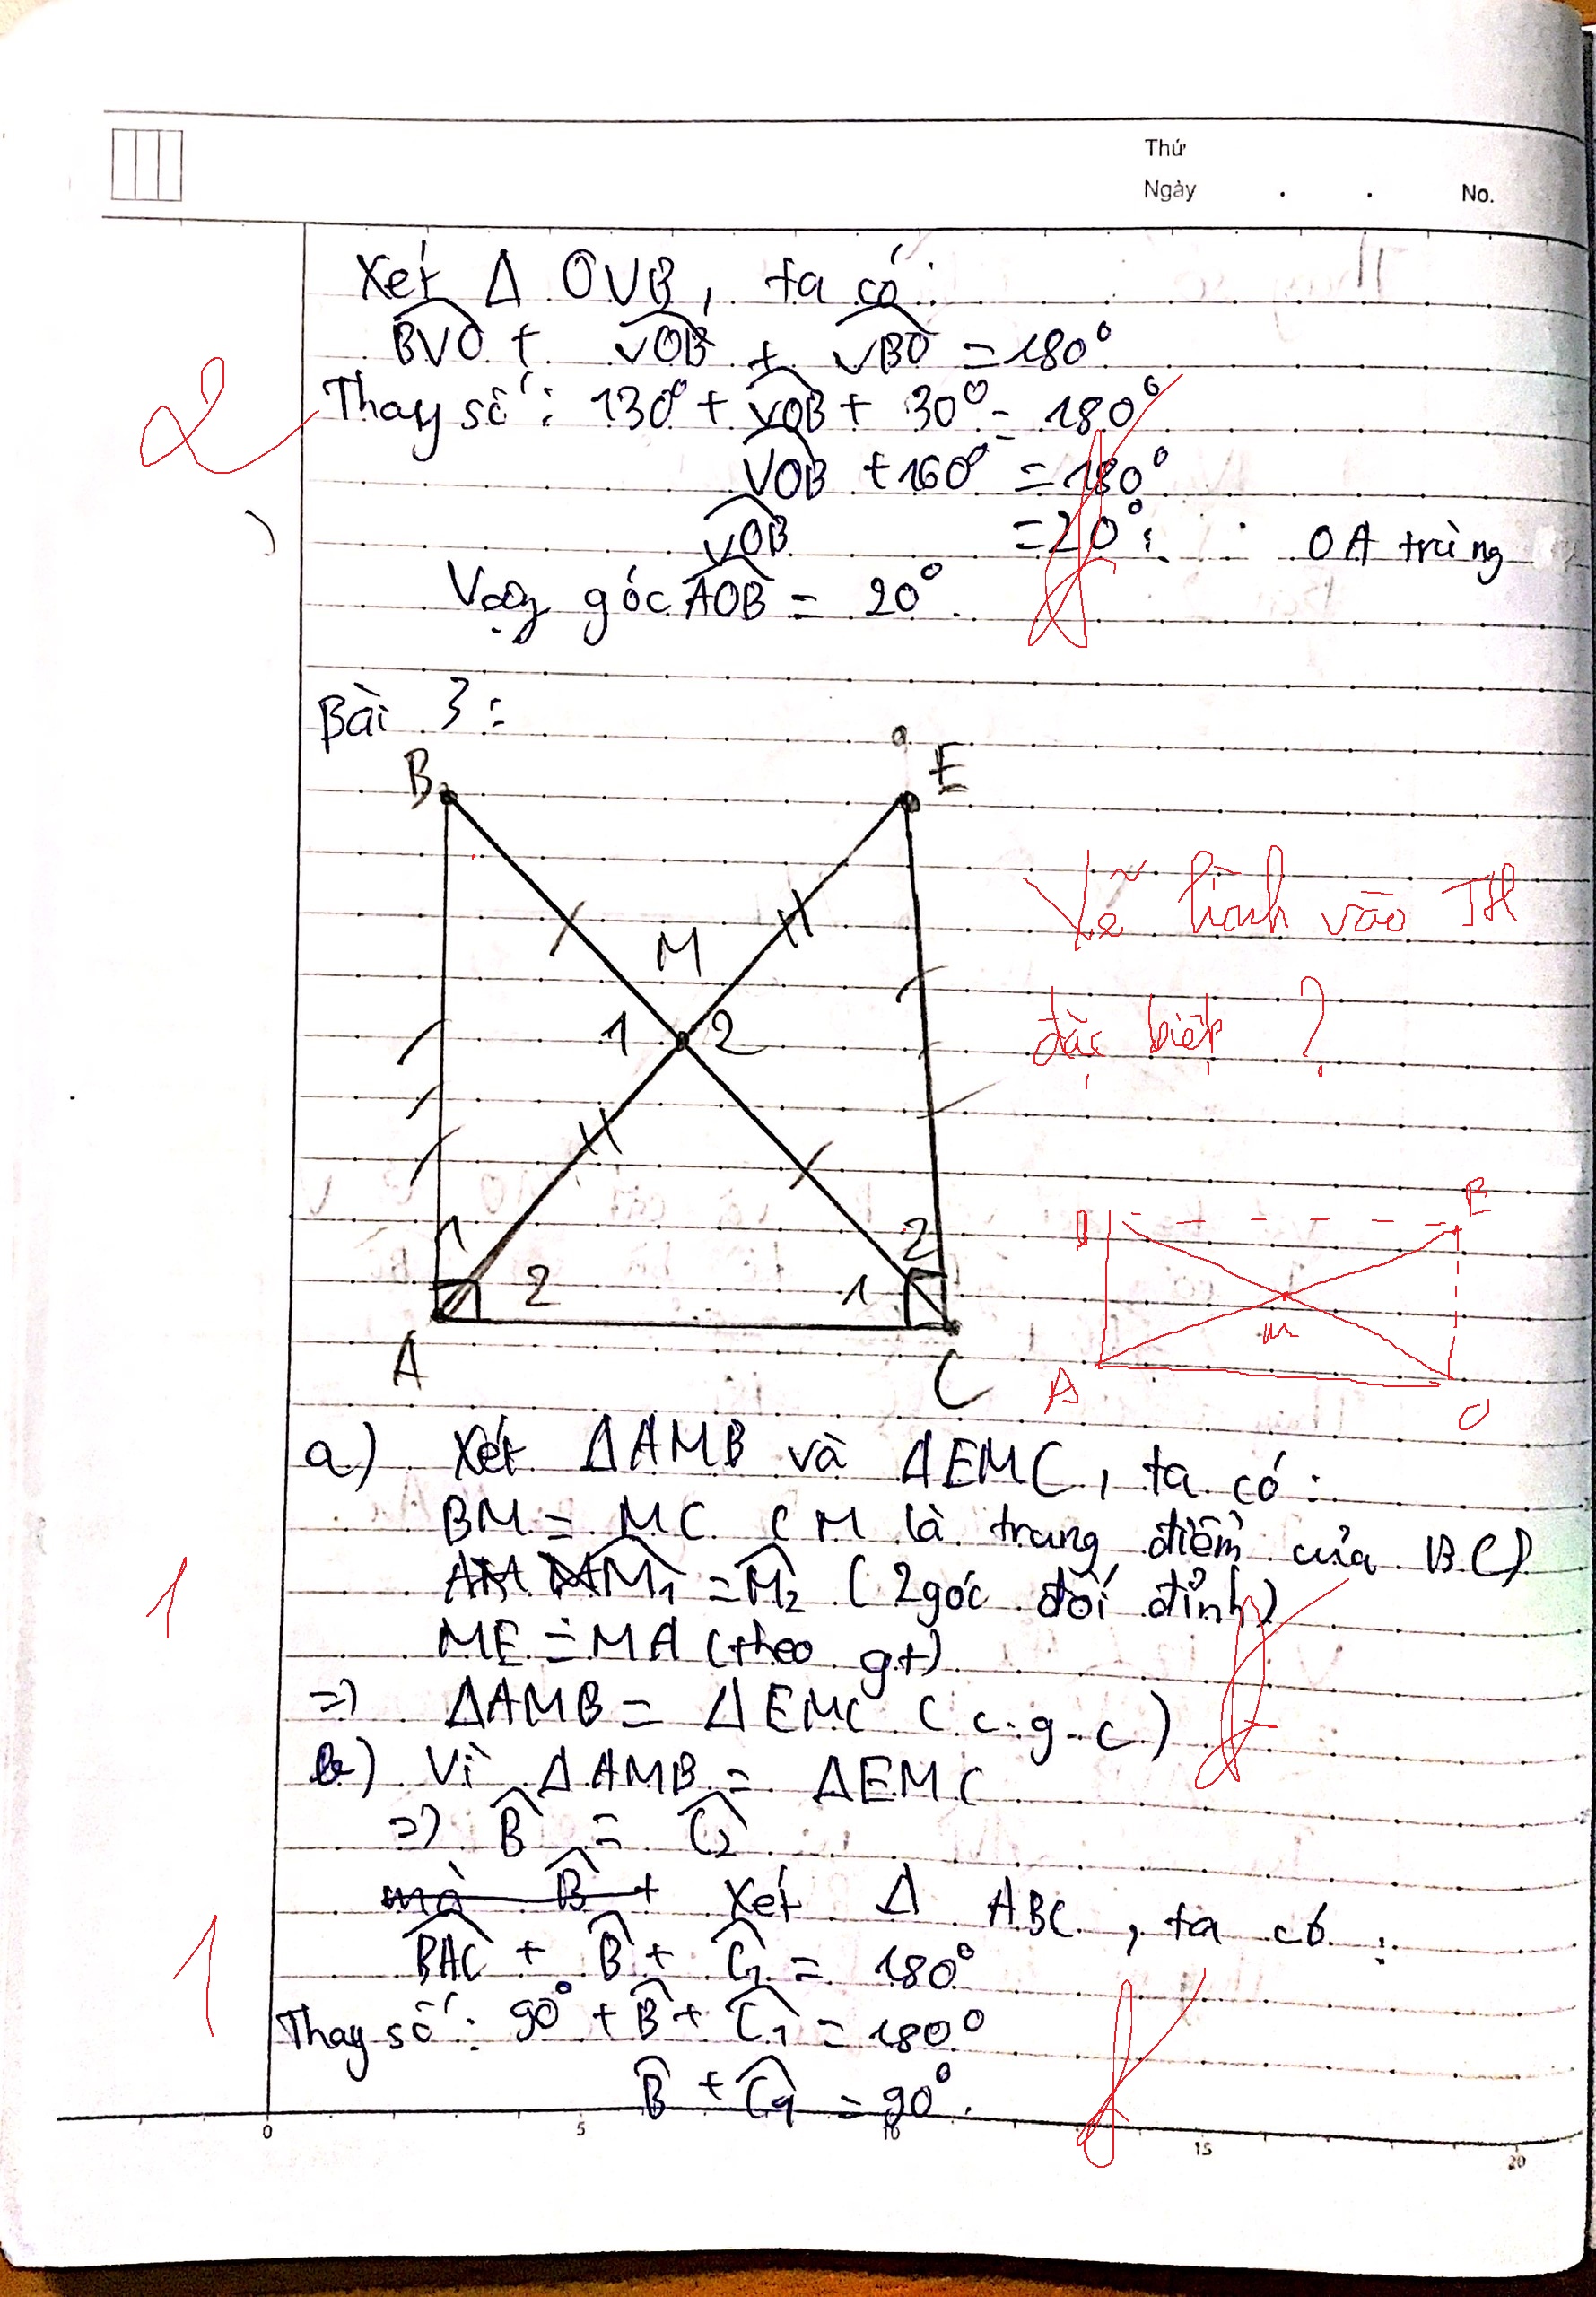 Thứ
Ngày . . No.
Xét Δ OVB, ta có:
BVO + VOB + VBO = 180°
2
Thay số: 130° + VOB + 30° = 180°
VOB + 160° = 180°
VOB = 20°
OA trùng
Vậy góc AOB = 20°.
Bài 3:
B E
Vẽ hình vào TH
M
1 2
đặc biệt ?
B E
1 2
2 1
M
A C
A C
a) Xét ΔAMB và ΔEMC, ta có:
BM = MC (M là trung điểm của BC)
M1 = M2 (2 góc đối đỉnh)
1
ME = MA (theo gt)
=) ΔAMB = ΔEMC (c.g-c)
b) Vì ΔAMB = ΔEMC
=) B = C2
mà B + Xét Δ ABC, ta có:
1
BAC + B + C1 = 180°
Thay số: 90° + B + C1 = 180°
B + C1 = 90°.
0 5 10 15 20